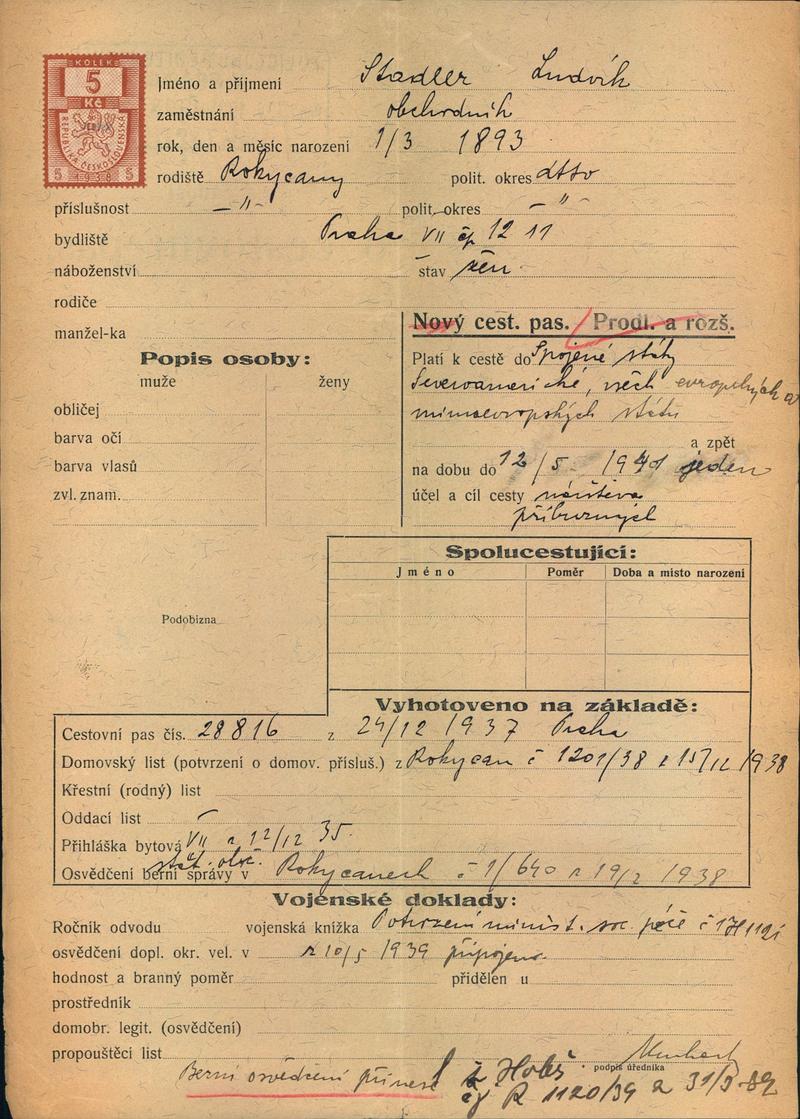 KOLEK
5
Kč
REPUBLIKA ČESKOSLOVENSKÁ
5 1938 5
Jméno a příjmení Stadler Ludvík
zaměstnání obchodník
rok, den a měsíc narození 1/3 1893
rodiště Rokycany polit. okres dtto
příslušnost —"— polit. okres —"—
bydliště Praha VII čp 12 11
náboženství stav žen.
rodiče
manžel-ka
Nový cest. pas. / Prodl. a rozš.
Platí k cestě do Spojené státy
Severoamerické, všech evropských a
mimoevropských států
a zpět
na dobu do 12/5 1941 jeden
účel a cíl cesty návštěva
příbuzných
Popis osoby:
muže ženy
obličej
barva očí
barva vlasů
zvl. znam.
Podobizna
Spolucestující:
Jméno Poměr Doba a místo narození
Vyhotoveno na základě:
Cestovní pas čís. 28816 z 24/12 1937 Praha
Domovský list (potvrzení o domov. přísluš.) z Rokycan č 1201/38 z 15/12 1938
Křestní (rodný) list
Oddací list —
Přihláška bytová VII z 12/12 35.
stát. obč.
Osvědčení berní správy v Rokycanech č 1/640 z 19/2 1938
Vojenské doklady:
Ročník odvodu vojenská knížka Potvrzení minist. soc. péče č
osvědčení dopl. okr. vel. v z 10/5 1939 připojeno.
hodnost a branný poměr přidělen u
prostředník
domobr. legit. (osvědčení)
propouštěcí list
podpis úředníka
Berní osvědčení přinesl
čj R 1120/39 z 31/3